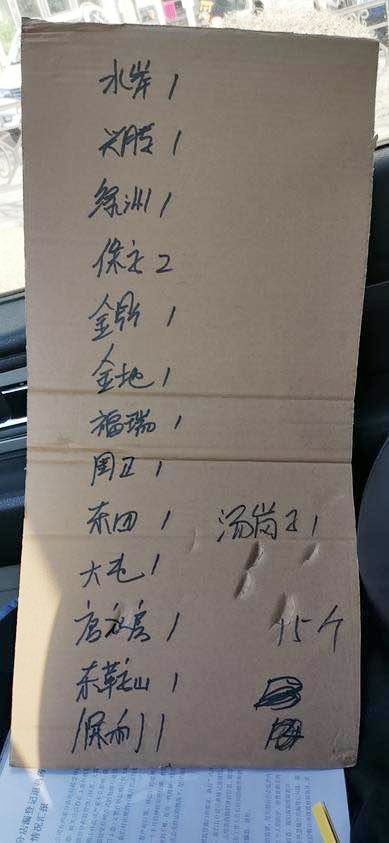 水岸 1
兴胜 1
绿洲 1
保利 2
金鼎 1
金地 1
福瑞 1
周卫 1
东田 1 汤岗子 1
大屯 1
唐家房 1
15个
东鞍山 1
保利 1